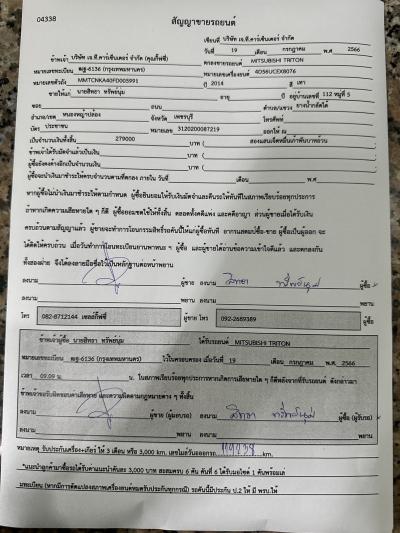 04338
สัญญาขายรถยนต์
เขียนที่ บริษัท เจ.ที.คาร์เซ็นเตอร์ จำกัด (คุณกี้พซี่)
วันที่ 19 เดือน กรกฎาคม พ.ศ. 2566
ข้าพเจ้า บริษัท เจ.ที.คาร์เซ็นเตอร์ จำกัด (คุณกี้พซี่) ตกลงขายรถยนต์ MITSUBISHI TRITON
หมายเลขทะเบียน ฒฐ-6136 (กรุงเทพมหานคร) หมายเลขเครื่องยนต์ 4D56UCEX8076
หมายเลขตัวถัง MMTCNKA40FD003991 ปี 2014 สี เทา
ขายให้แก่ นายสิทธา ทรัพย์นุ่ม อายุ ปี อยู่บ้านเลขที่ 112 หมู่ที่ 5
ซอย ถนน ตำบล/แขวง ยางน้ำกลัดใต้
อำเภอ/เขต หนองหญ้าปล้อง จังหวัด เพชรบุรี โทรศัพท์
บัตร ประชาชน หมายเลข 3120200087219 ออกให้ ณ
เป็นจำนวนเงินทั้งสิ้น 279000 บาท ( สองแสนเจ็ดหมื่นเก้าพันบาทถ้วน )
ข้าพเจ้าได้รับมัดจำแล้วเป็นเงิน บาท ( )
ผู้ซื้อยังคงค้างอีกเป็นจำนวนเงิน บาท ( )
ผู้ซื้อจะนำเงินมาชำระให้ครบจำนวนตามที่ตกลง ภายใน วันที่ เดือน พ.ศ.
หากผู้ซื้อไม่นำเงินมาชำระให้ตามกำหนด ผู้ซื้อยินยอมให้ริบเงินมัดจำและคืนรถให้ทันทีในสภาพเรียบร้อยทุกประการ
ถ้าหากเกิดความเสียหายใด ๆ ก็ดี ผู้ซื้อยอมชดใช้ให้ทั้งสิ้น ตลอดทั้งคดีแพ่ง และคดีอาญา ส่วนผู้ขายเมื่อได้รับเงิน
ครบถ้วนตามสัญญาแล้ว ผู้ขายจะทำการโอนกรรมสิทธิ์รถคันนี้ให้แก่ผู้ซื้อทันที อากรแสตมป์ซื้อ-ขาย ผู้ซื้อเป็นผู้ออก จะ
ได้ติดให้ครบถ้วน เมื่อวันทำการโอนทะเบียนยานพาหนะ ฯ ผู้ซื้อ และผู้ขายได้อ่านข้อความเข้าใจดีแล้ว และตกลงกัน
ทั้งสองฝ่าย จึงได้ลงลายมือชื่อไว้เป็นหลักฐานต่อหน้าพยาน
ลงนาม ผู้ขาย ลงนาม สิทธา ทรัพย์นุ่ม ผู้ซื้อ
ลงนาม พยาน ลงนาม พยาน
โทร 082-8712144 เซลล์กี้พซี่ ผู้ขาย โทร 092-2689389 ผู้ซื้อ
ข้าพเจ้าผู้ซื้อ นายสิทธา ทรัพย์นุ่ม ได้รับรถยนต์ MITSUBISHI TRITON
หมายเลขทะเบียน ฒฐ-6136 (กรุงเทพมหานคร) ไว้ในครอบครอง เมื่อวันที่ 19 เดือน กรกฎาคม พ.ศ. 2566
เวลา 09.09 น. น. ในสภาพเรียบร้อยทุกประการหากเกิดการเสียหายใด ๆ ก็ดีหลังจากที่รับรถยนต์ ดังกล่าวมา
ข้าพเจ้าขอรับผิดชอบค่าเสียหาย และความผิดตามกฎหมายต่าง ๆ ทั้งสิ้น
ลงนาม ผู้ขาย (ผู้มอบรถ) ลงนาม สิทธา ทรัพย์นุ่ม ผู้ซื้อ (ผู้รับรถ)
ลงนาม พยาน ลงนาม พยาน
หมายเหตุ รับประกันเครื่อง+เกียร์ ให้ 3 เดือน หรือ 3,000 km. เลขไมล์วันออกรถ km.
*แนะนำลูกค้ามาซื้อรถได้รับค่าแนะนำคันละ 3,000 บาท สะสมครบ 6 คัน คันที่ 6 ได้รับมอไซค์ 1 คันพร้อมเล่ม
ทะเบียน (หากมีการดัดแปลงสภาพเครื่องยนต์หมดรับประกันทุกกรณี) รถคันนี้มีประกัน ป.2 ให้ มี พรบ.ให้